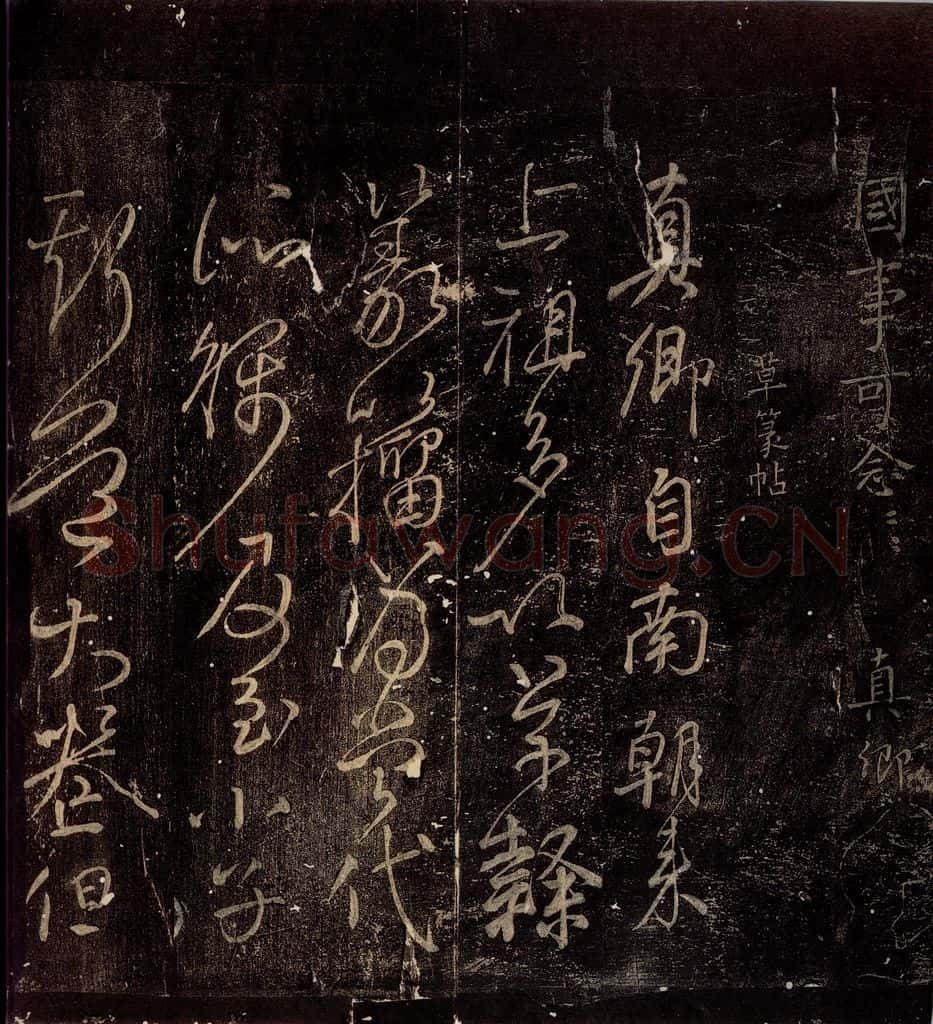 國事可念〻真卿
草篆帖
真卿自南朝来
上祖多以草隸
篆籀為當代
所稱及至小子
斯道大喪但
Shufawang.CN